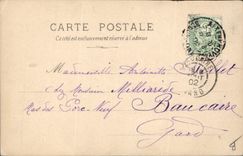 CARTE POSTALE
Ce côté est exclusivement réservé à l'adresse
Mademoiselle Antoinette
chez Monsieur Milliarède
Rue du Pore Neuf Beaucaire
Gard
02